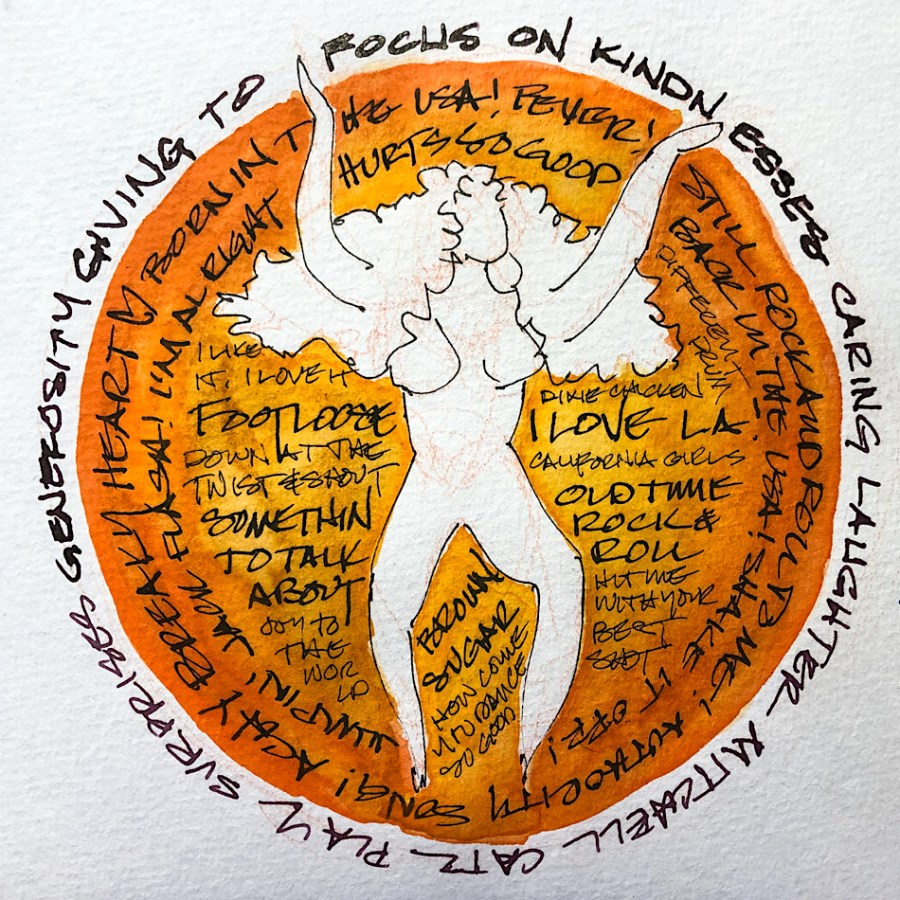 FOCUS ON KINDNESSES CARING LAUGHTER MITCHELL CATZ PLAY SURPRISES GENEROSITY GIVING TO
ACHY BREAKY HEART BORN IN THE USA! FEVER!
STILL ROCK AND ROLL TO ME! AUTHORITY SONG!
JUMPIN' JACK FLASH! I'M ALRIGHT
HURTS SO GOOD
BACK IN THE USA! SHAKE IT OFF!
DIFFERENT
I LIKE
IT. I LOVE IT
FOOTLOOSE
DOWN AT THE
TWIST & SHOUT
SOMETHIN
TO TALK
ABOUT
JOY TO
THE
WOR
LD
BROWN
SUGAR
HOW COME
U DANCE
SO GOOD
DIXIE CHICKEN
I LOVE LA
CALIFORNIA GIRLS
OLD TIME
ROCK &
ROLL
HIT ME
WITH YOUR
BEST
SHOT